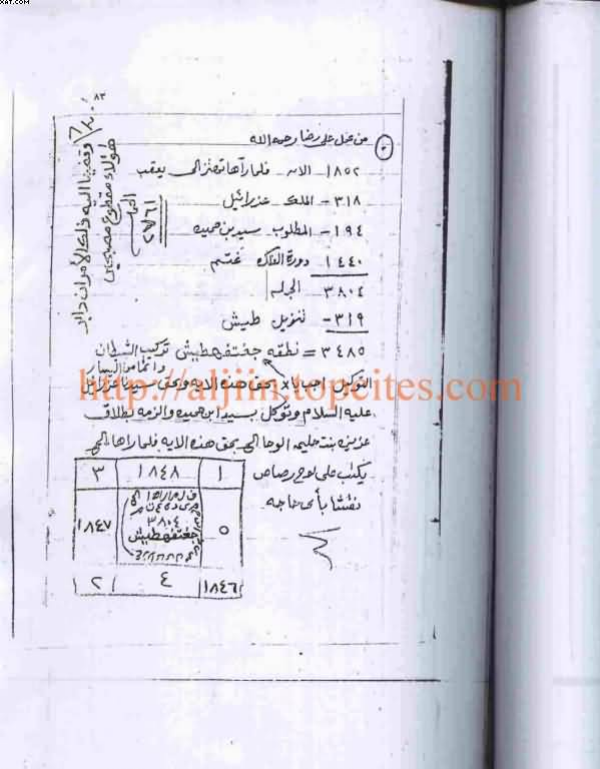 XAT.COM
٨٣
من عمل علي رضا رحمه الله
١٨٥٢ الايه فلما رآها تهتز الى يعقب
٣١٨ - الملك عزرائيل
١٩٤ - المطلوب سيد بن حميده
١٤٤٠ دورة الفلك غتم
٣٨٠٤ الجمله
٣١٩ - تنزيل طيش
٣٤٨٥ = نطقه جغتفهطيش تركيب الشيطان
التوكيل اجب يا x بحق هذه الايه وبحق سيدنا عزرائيل
عليه السلام وتوكل بسيد ابن حميده والزمه بطلاق
عزيزه بنت حليمه الوحا الخ بحق هذه الايه فلما رآها الخ
يكتب على لوح رصاص
نقشا بأي حاجه
٣ ١٨٤٨ ١
١٨٤٧ ٣٨٠٤ جغتفهطيش ٥
٢ ٤ ١٨٤٦
وقضينا اليه ذلك الامر ان دابر
هؤلاء مقطوع مصبحين
٢٧٦١
http://aljiin.topcites.com